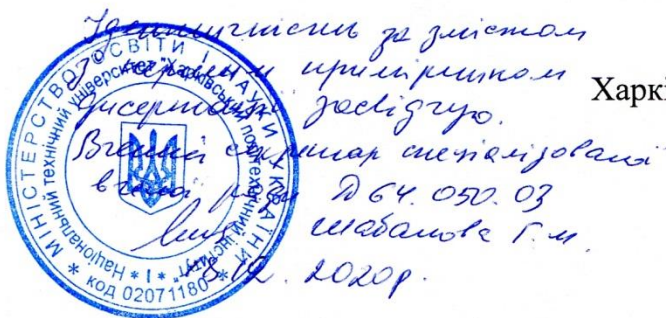 Ідентичність за змістом
з першим примірником
дисертації засвідчую.
Харкі
Вчений секретар спеціалізованої
вченої ради Д 64.050.03
Шабанова Г.М.
12. 2020р.
МІНІСТЕРСТВО ОСВІТИ І НАУКИ УКРАЇНИ
Національний технічний університет "Харківський політехнічний інститут"
* 1 *
* код 02071180 *